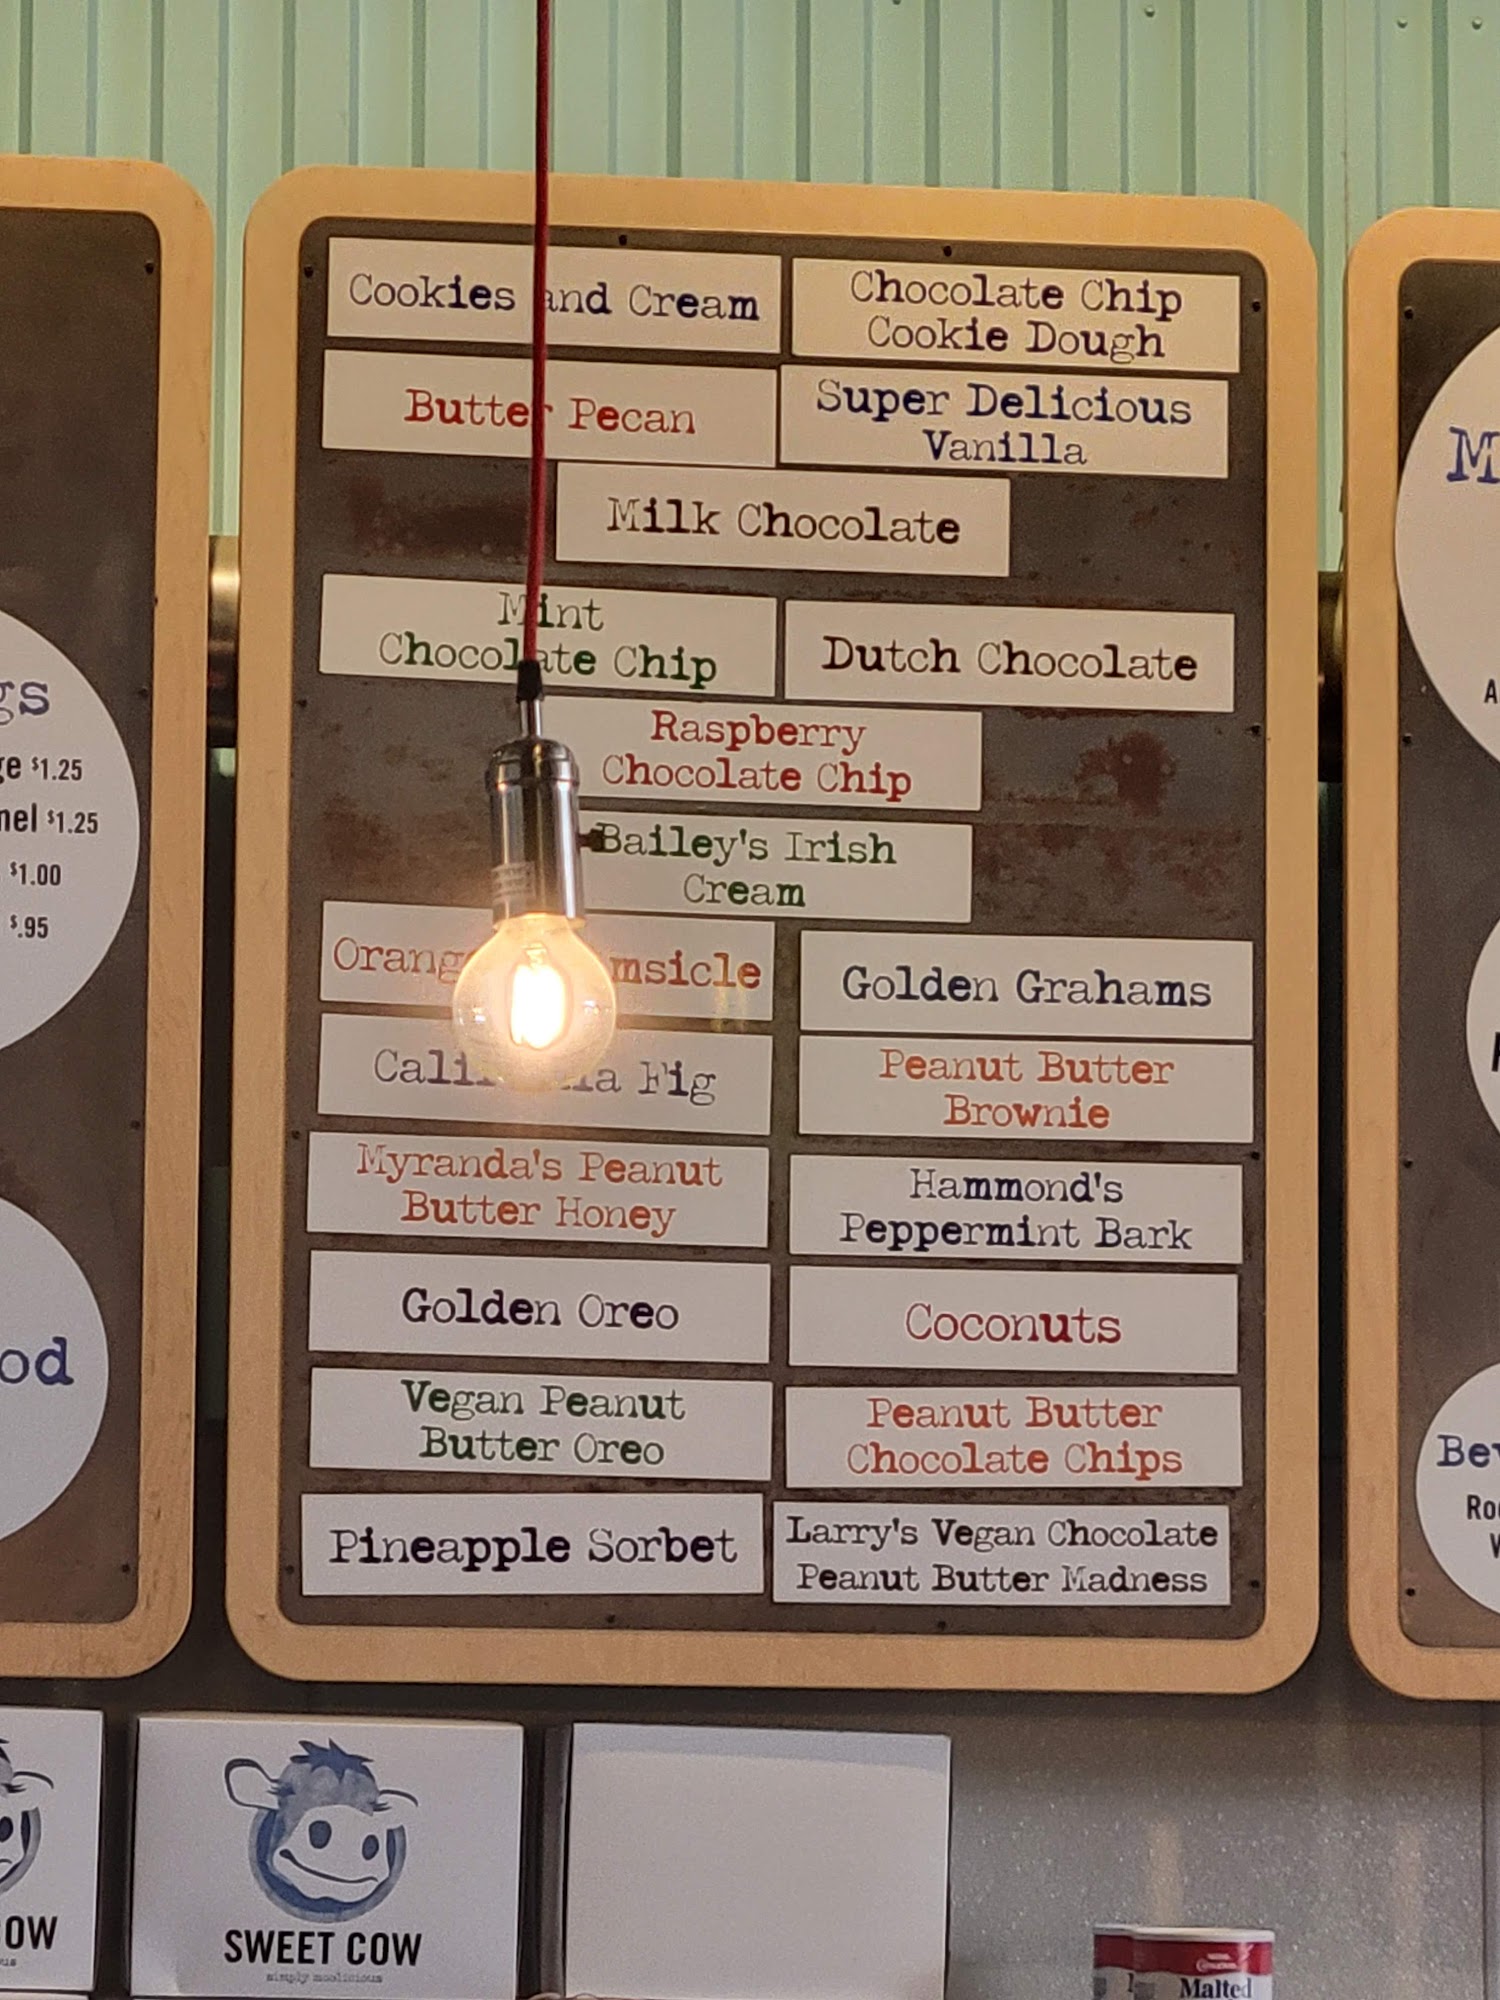 Cookies and Cream
Chocolate Chip
Cookie Dough
Butter Pecan
Super Delicious
Vanilla
Milk Chocolate
Mint
Chocolate Chip
Dutch Chocolate
Raspberry
Chocolate Chip
Bailey's Irish
Cream
Golden Grahams
Fig
Peanut Butter
Brownie
Myranda's Peanut
Butter Honey
Hammond's
Peppermint Bark
Golden Oreo
Coconuts
Vegan Peanut
Butter Oreo
Peanut Butter
Chocolate Chips
Pineapple Sorbet
Larry's Vegan Chocolate
Peanut Butter Madness
$1.25
$1.25
$1.00
$.95
SWEET COW
simply moolicious
Malted